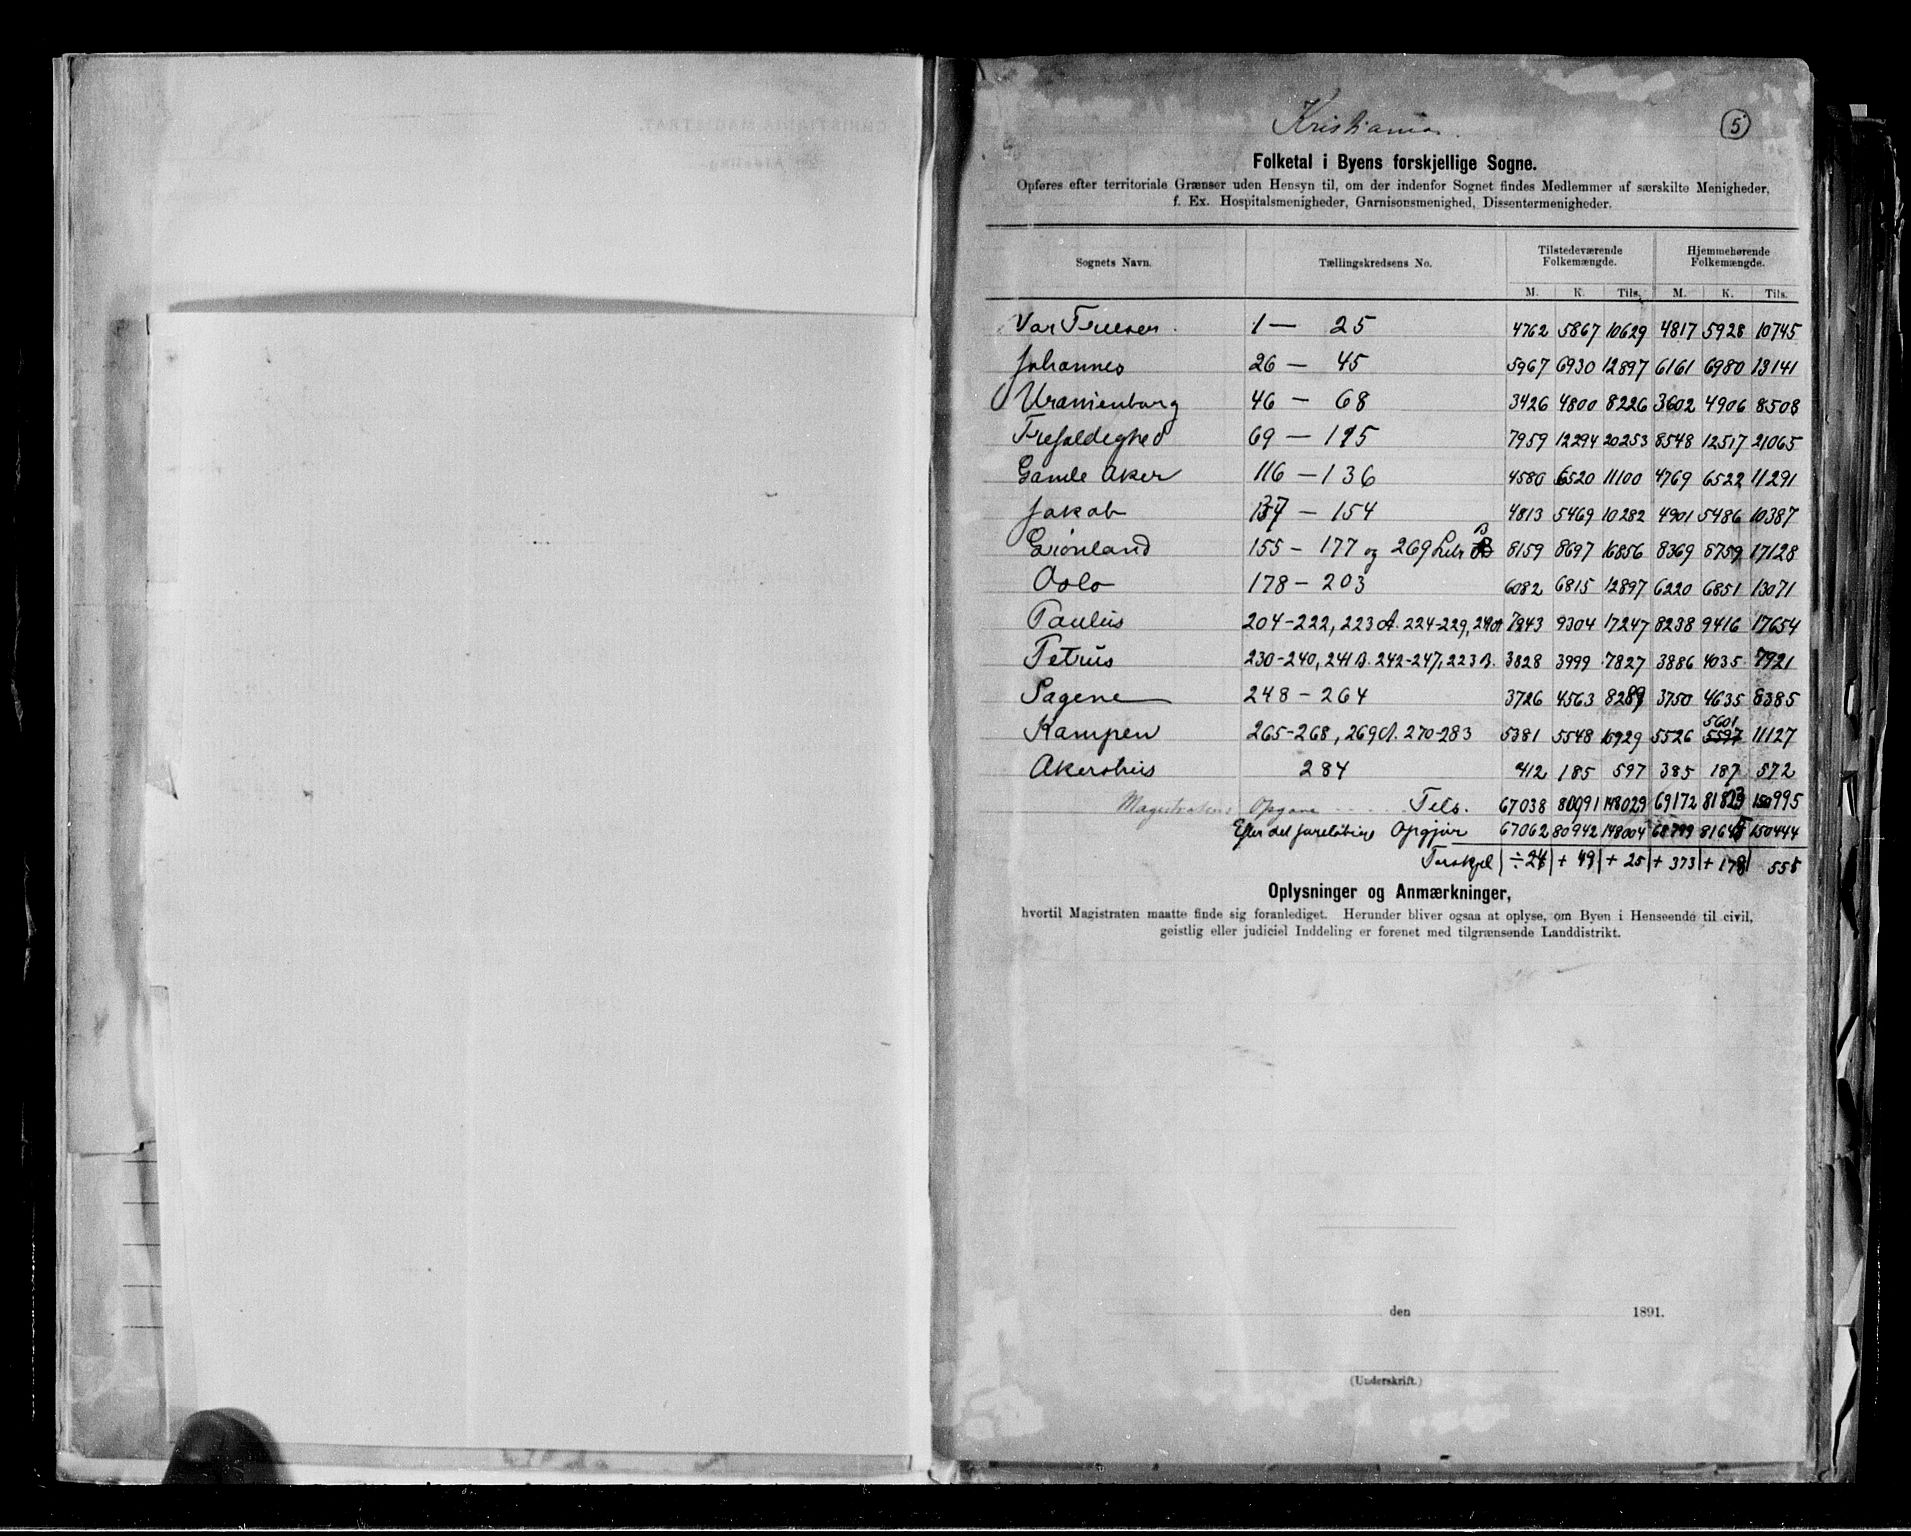 Kristiania.
5
Folketal i Byens forskjellige Sogne.
Opføres efter territoriale Grænser uden Hensyn til, om der indenfor Sognet findes Medlemmer af særskilte Menigheder,
f. Ex. Hospitalsmenigheder, Garnisonsmenighed, Dissentermenigheder.
Sognets Navn. Tællingskredsens No. Tilstedeværende Folkemængde. Hjemmehørende Folkemængde.
M. K. Tils. M. K. Tils.
Vor Frelser. 1 — 25 4762 5867 10629 4817 5928 10745
Johannes 26 — 45 5967 6930 12897 6161 6980 13141
Uranienborg 46 — 68 3426 4800 8226 3602 4906 8508
Trefoldighed 69 — 115 7959 12294 20253 8548 12517 21065
Gamle Aker 116 — 136 4580 6520 11100 4769 6522 11291
Jakob 137 — 154 4813 5469 10282 4901 5486 10387
Grønland 155 — 177 og 269 Litr B 8159 8697 16856 8369 8759 17128
Oslo 178 — 203 6082 6815 12897 6220 6851 13071
Paulus 204-222, 223 A. 224-229, 241 A 7943 9304 17247 8238 9416 17654
Petrus 230-240, 241 B. 242-247, 223 B. 3828 3999 7827 3886 4035 7921
Sagene 248 — 264 3726 4563 8289 3750 4635 8385
Kampen 265-268, 269 A. 270-283 5381 5548 10929 5526 5597 5601 11127
Akershus 284 412 185 597 385 187 572
Magistratens Opgave Tils. 67038 80991 148029 69172 81823 150995
Efter det foreløbige Opgjør 67062 80942 148004 68799 81645 150444
Forskjel ÷ 24 + 49 + 25 + 373 + 178 558
Oplysninger og Anmærkninger,
hvortil Magistraten maatte finde sig foranlediget. Herunder bliver ogsaa at oplyse, om Byen i Henseende til civil,
geistlig eller judiciel Inddeling er forenet med tilgrænsende Landdistrikt.
den 1891.
(Underskrift.)